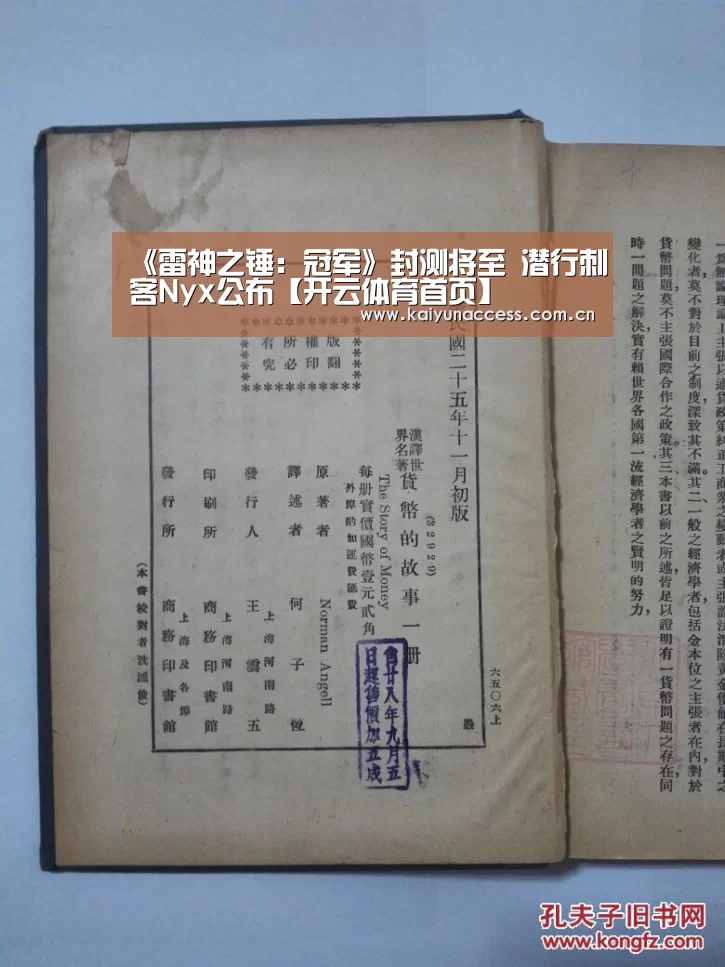 《雷神之锤：冠军》封测将至 潜行刺
客Nyx公布【开云体育首页】
www.kaiyunaccess.com.cn
民國二十五年十一月初版
(32929)
漢譯世
界名著
貨幣的故事一册
The Story of Money
每册實價國幣壹元貳角
外埠酌加運費匯費
原著者 Norman Angell
譯述者 何子恆
發行人 王雲五
上海河南路
印刷所 商務印書館
上海河南路
發行所 商務印書館
上海及各埠
(本書校對者沈
版權所有
翻印必究
六五〇六上
自廿八年九月五
日起售價加五成
變化者莫不對於目前之制度深致其不滿其二一般之經濟學者包括金本位之主張者在內對於
貨幣問題莫不主張國際合作之政策其三本書以前之所述皆足以證明有一貨幣問題之存在同
時一問題之解決實有賴世界各國第一流經濟學者之賢明的努力
孔夫子旧书网
www.kongfz.com